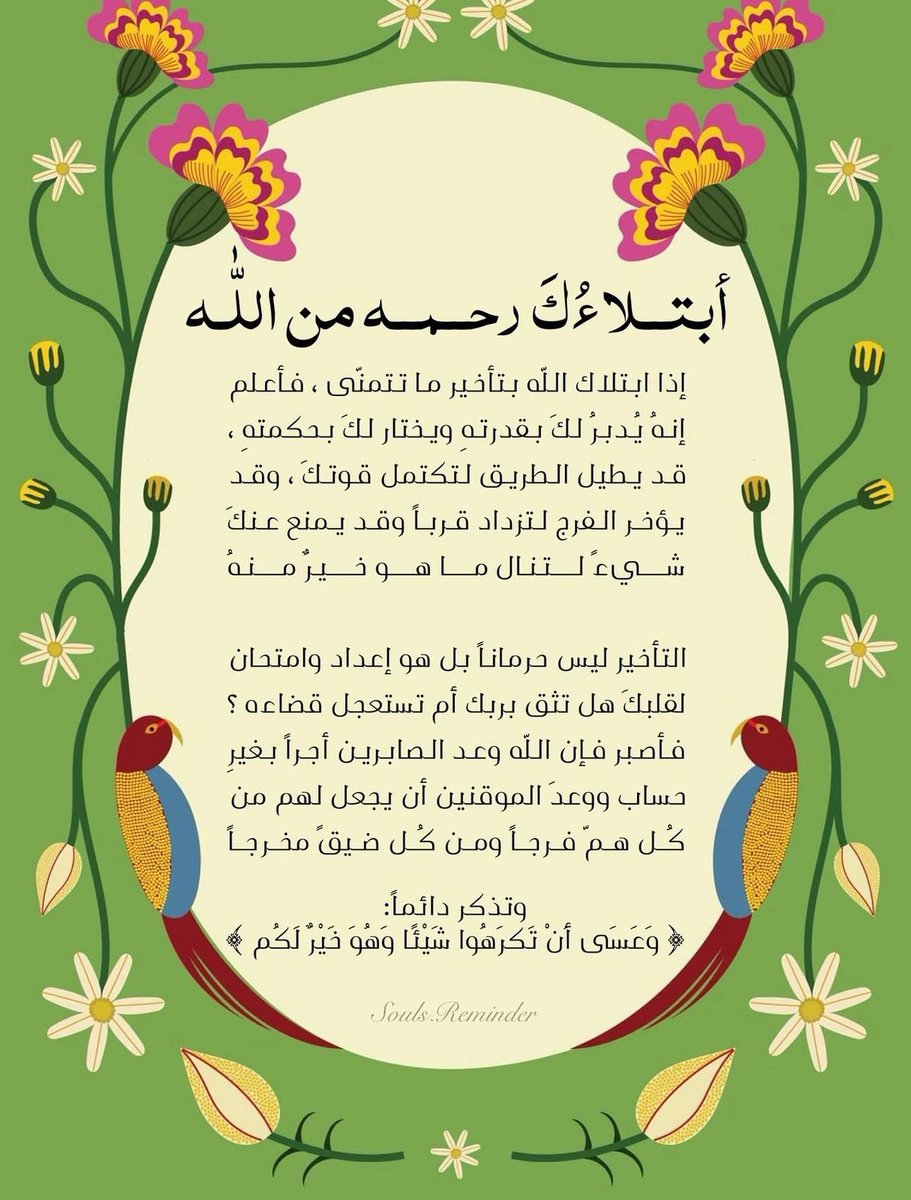 أبتــلاءُكَ رحــمــه من اللّٰه
إذا ابتلاك اللّه بتأخير ما تتمنّى ، فأعلم
إنهُ يُدبرُ لكَ بقدرتهِ ويختار لكَ بحكمتهِ ،
قد يطيل الطريق لتكتمل قوتكَ ، وقد
يؤخر الفرج لتزداد قرباً وقد يمنع عنكَ
شــيءً لــتنال مــا هــو خــيرٌ مــنهُ
التأخير ليس حرماناً بل هو إعداد وامتحان
لقلبكَ هل تثق بربك أم تستعجل قضاءه ؟
فأصبر فإن اللّه وعد الصابرين أجراً بغيرِ
حساب ووعدَ الموقنين أن يجعل لهم من
كُل همّ فرجاً ومن كُل ضيقً مخرجاً
وتذكر دائماً:
﴿ وَعَسَى أنْ تَكرَهُوا شَيْئًا وَهُوَ خَيْرٌ لَكُم ﴾
Souls.Reminder